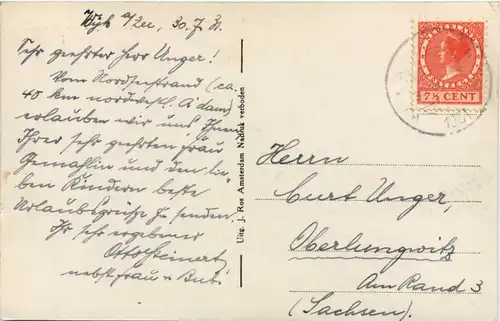 Wyk a/Zee, 30.7.31.
Sehr geehrter Herr Unger!
Vom Nordseestrand (ca.
40 km nordwestl. A'dam)
erlauben wir uns Ihnen
Ihrer sehr geehrten Frau
Gemahlin und den lie-
ben Kindern beste
Urlaubsgrüße zu senden.
Ihr sehr ergebener
Otto Steinert
nebst Frau u. Bub.
Uitg. J. Ros Amsterdam Nadruk verboden
NEDERLAND
7½ CENT
Herrn
Curt Unger,
Oberlungwitz
Am Rand 3
(Sachsen).